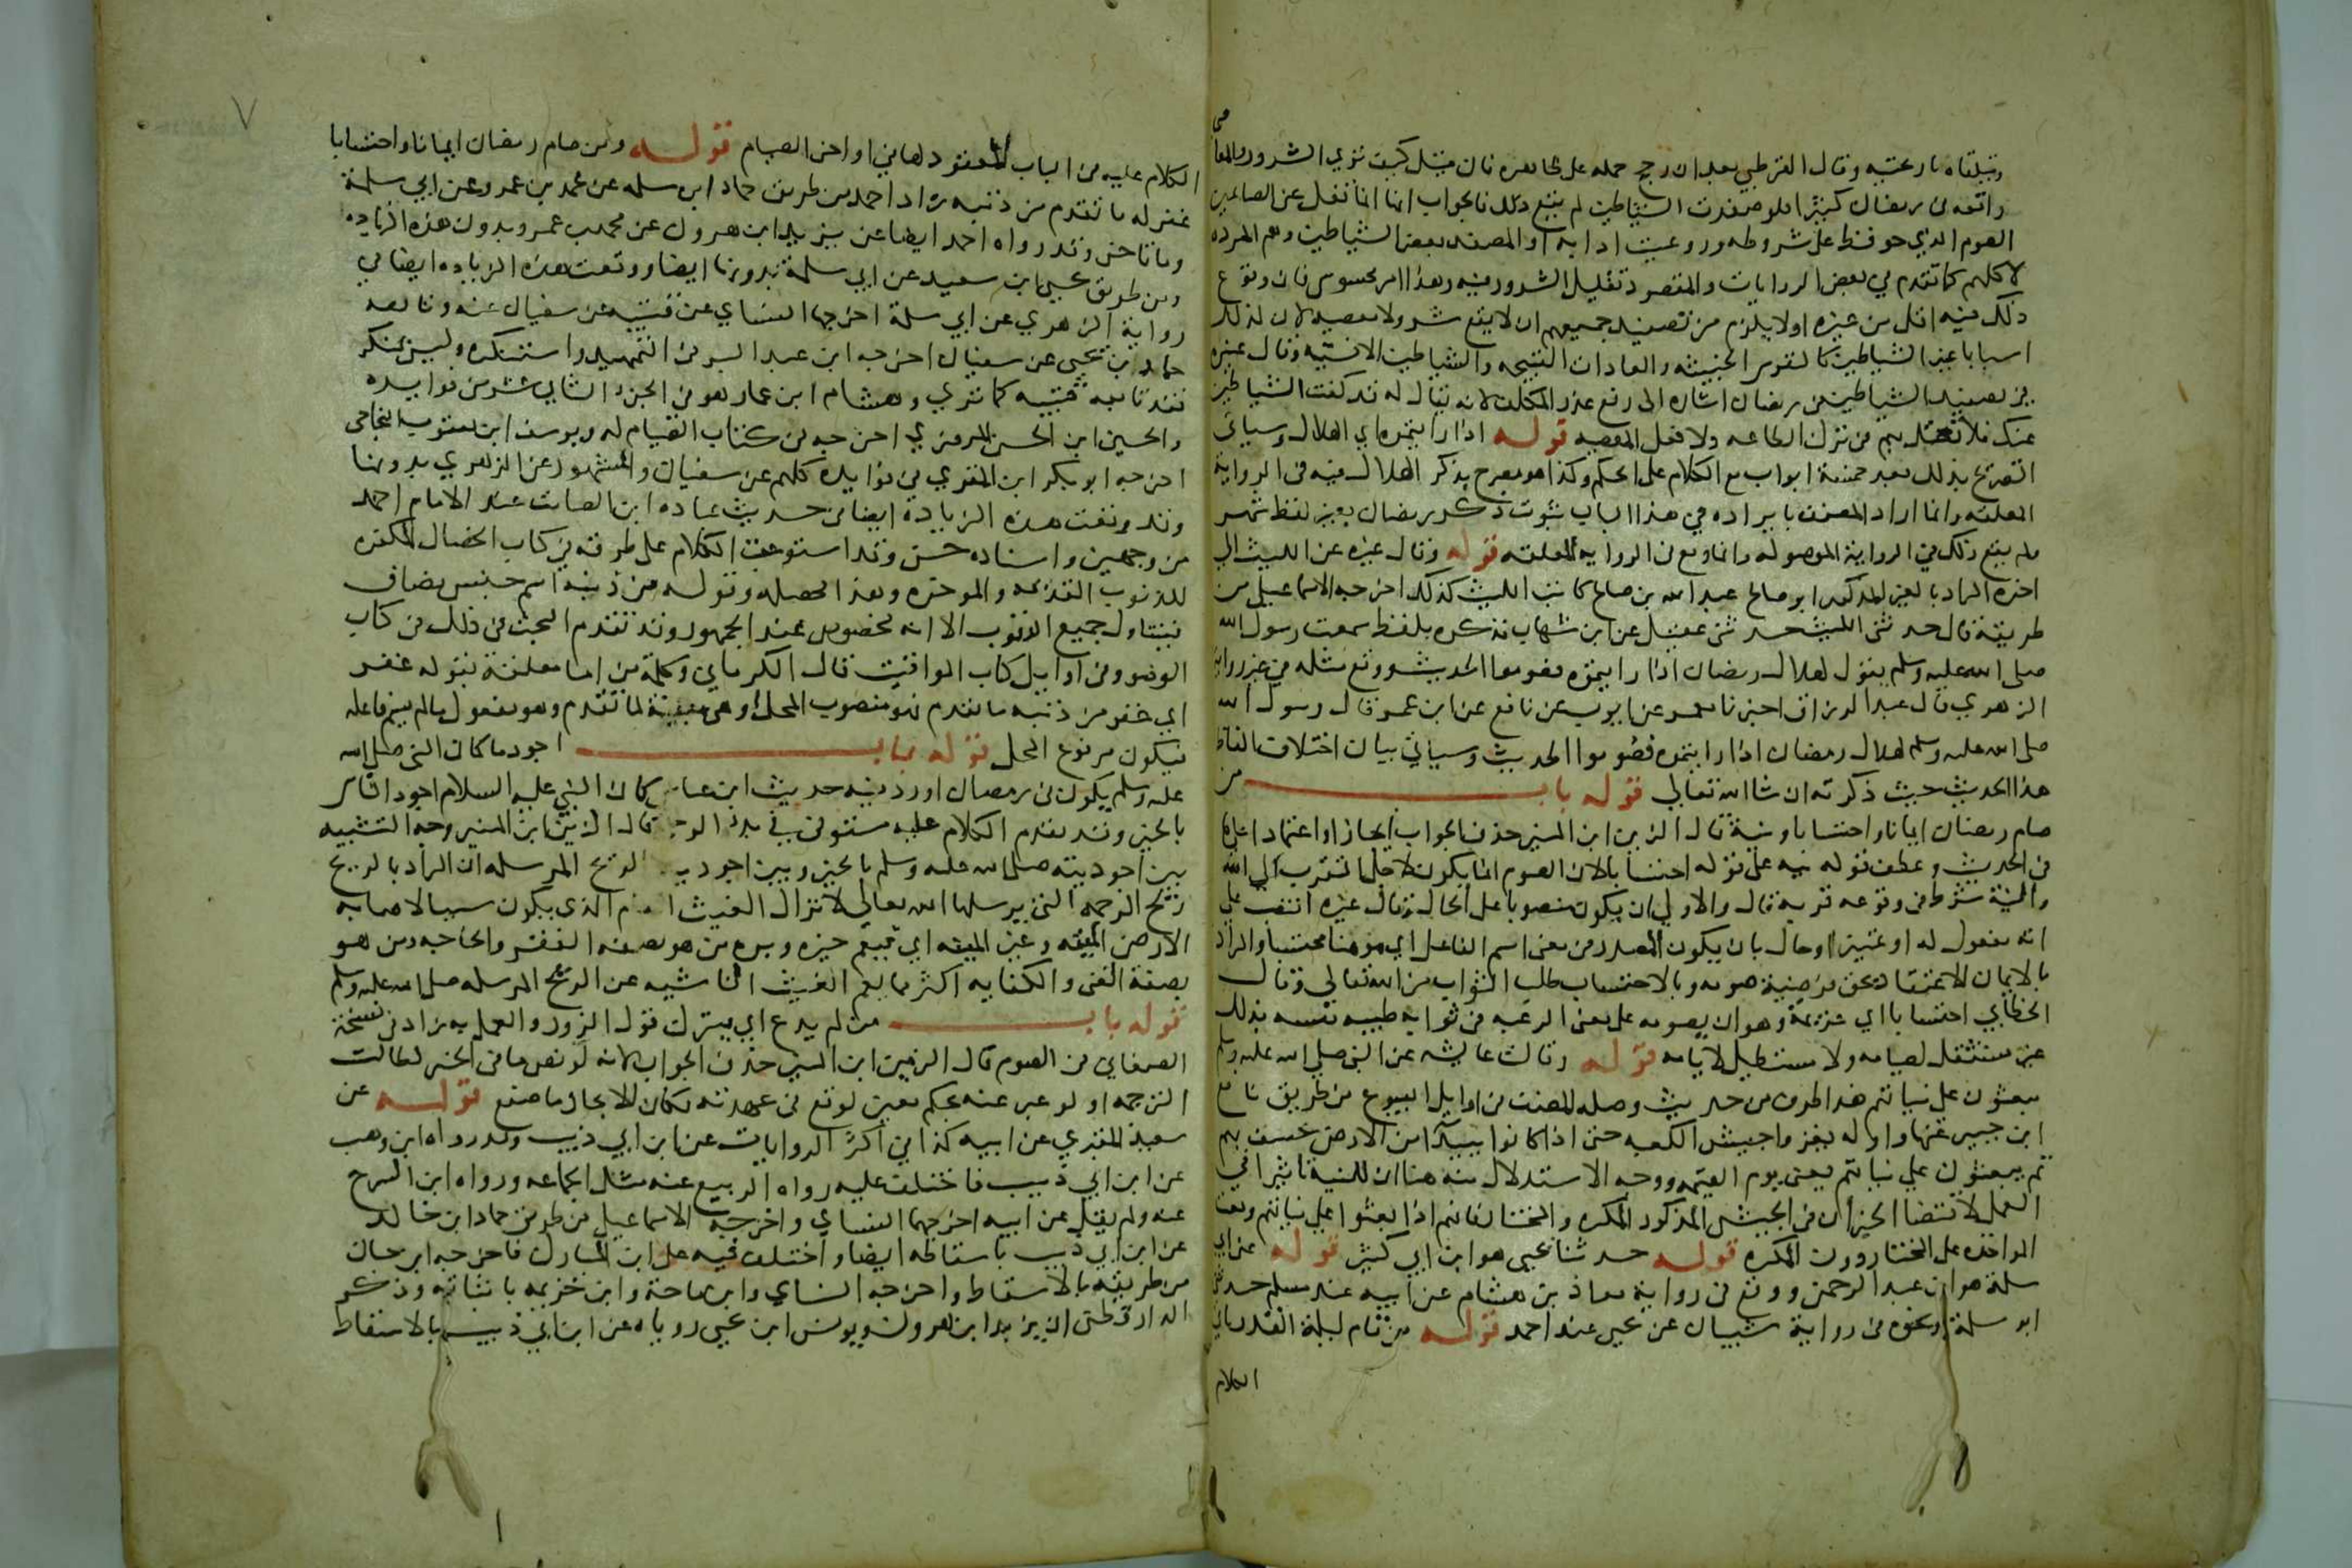 وتبلقاه بارعيته وقال القرطبي بعد ان رجح حمله على ظاهره فان قيل كيف نري الشرور والمعاصي
واقعه في رمضان كثيرا فلو صفدت الشياطين لم يقع ذلك فالجواب انها انما تقل عن الصائمين
الصوم الذي حوفظ على شروطه وروعيت ادابه او المصفد بعض الشياطين وهم المرده
لا كلهم كما تقدم في بعض الروايات والمقصود تقليل الشرور فيه وهذا امر محسوس فان وقوع
ذلك فيه اقل من غيره اولا يلزم من تصفيد جميعهم ان لا يقع شر ولا معصيه لان لذلك
اسبابا غير الشياطين كالنفوس الخبيثه والعادات القبيحه والشياطين الانسيه وقال غيره
في تصفيد الشياطين في رمضان اشاره الى رفع عذر المكلف لانه يقال له قد كفت الشياطين
عنك فلا تعتل بهم في ترك الطاعه ولا فعل المعصيه قوله اذا رايتموه اي الهلال وسياتي
التصريح بذلك بعد خمسة ابواب مع الكلام على الحكم وكذا هو مصرح بذكر الهلال فيه في الرواية
المعلقه وانما اراد المصنف بايراده في هذا الباب ثبوت ذكر رمضان بغير لفظ شهر
ولم يقع ذلك في الرواية الموصوله وانما وقع في الروايه المعلقه قوله وقال غيره عن الليث الى
اخره المراد بالغير المذكور ابو صالح عبد الله بن صالح كاتب الليث كذلك اخرجه الاسماعيلي من
طريقه قال حدثني الليث حدثني عقيل عن ابن شهاب فذكره بلفظ سمعت رسول الله
صلى الله عليه وسلم يقول لهلال رمضان اذا رايتموه فصوموا الحديث ووقع مثله في غير رواية
الزهري قال عبد الرزاق اخبرنا معمر عن ايوب عن نافع عن ابن عمر قال رسول الله
صلى الله عليه وسلم لهلال رمضان اذا رايتموه فصوموا الحديث وسياتي بيان اختلاف الفاظ
هذا الحديث حيث ذكرته ان شا الله تعالى قوله باب من
صام رمضان ايمانا واحتسابا ونية قال الزين ابن المنير حذف الجواب ايجازا واعتمادا على ما
في الحديث وعطف قوله نيه على قوله احتسابا لان الصوم انما يكون لاجل التقرب الى الله
والنية شرط في وقوعه قربه قال والاولى ان يكون منصوبا على الحال وقال غيره انتصب على
انه مفعول له او تمييز او حال بان يكون المصدر في معنى اسم الفاعل اي مومنا محتسبا والمراد
بالايمان الاعتقاد بحق فرضية صومه وبالاحتساب طلب الثواب من الله تعالى وقال
الخطابي احتسابا اي عزيمة وهو ان يصومه على معنى الرغبه في ثوابه طيبه نفسه بذلك
غير مستثقل لصيامه ولا مستطيل لايامه قوله وقالت عايشه عن النبي صلى الله عليه وسلم
يبعثون على نياتهم هذا طرف من حديث وصله المصنف في اوايل البيوع من طريق نافع
ابن جبير عنها واوله يغزو اجيش الكعبه حتى اذا كانوا ببيدا من الارض خسف بهم
ثم يبعثون على نياتهم يعني يوم القيمه ووجه الاستدلال منه هنا ان للنية تاثيرا في
العمل لاقتضا الخبر ان في الجيش المذكور المكره والمختار فانهم اذا بعثوا على نياتهم وقعت
المواخذه على المختار دون المكره قوله حدثنا يحيى هو ابن ابي كثير قوله عن ابي
سلمة هو ابن عبد الرحمن ووقع في رواية معاذ بن هشام عن ابيه عند مسلم حدثني
ابو سلمة ونحوه في رواية شيبان عن يحيى عند احمد قوله من قام ليلة القدر ياتي
الكلام
الكلام عليه في الباب المعقود لها في اواخر الصيام قوله ومن صام رمضان ايمانا واحتسابا
غفر له ما تقدم من ذنبه زاد احمد من طريق حماد ابن سلمه عن محمد بن عمرو عن ابي سلمة
وما تاخر وقد رواه احمد ايضا عن يزيد ابن هرون عن محمد بن عمرو بدون هذه الزياده
ومن طريق يحيى ابن سعيد عن ابي سلمة بدونها ايضا ووقعت هذه الزياده ايضا في
رواية الزهري عن ابي سلمة اخرجها النساي عن قتيبه عن سفيان عنه وتابعه
حامد بن يحيى عن سفيان اخرجه ابن عبد البر في التمهيد واستنكره وليس بمنكر
فقد تابعه قتيبه كما تري وهشام ابن عمار وهو في الجزء الثاني عشر من فوايده
والحسين ابن الحسن المروزي اخرجه في كتاب الصيام له ويوسف ابن يعقوب النجاحي
اخرجه ابو بكر ابن المقري في فوايده كلهم عن سفيان والمشهور عن الزهري بدونها
وقد وقعت هذه الزيادة ايضا في حديث عباده ابن الصامت عند الامام احمد
من وجهين واسناده حسن وقد استوعبت الكلام على طرقه في كتاب الخصال المكفره
للذنوب المقدمه والموخره وهذا محصله وقوله من ذنبه اسم جنس مضاف
فيتناول جميع الذنوب الا انه مخصوص عند الجمهور وقد تقدم البحث في ذلك في كتاب
الوضو وفي اوايل كتاب المواقيت قال الكرماني وكلمة من اما متعلقة بقوله غفر
اي غفر من ذنبه ما تقدم فهو منصوب المحل او هي مبينة لما تقدم وهو مفعول ما لم يسم فاعله
فيكون مرفوع المحل قوله باب اجود ما كان النبي صلى الله
عليه وسلم يكون في رمضان اورد فيه حديث ابن عباس كان النبي عليه السلام اجود الناس
بالخير وقد تقدم الكلام عليه مستوفى في بدء الوحي قال الزين ابن المنير وجه التشبيه
بين اجوديته صلى الله عليه وسلم بالخير وبين اجودية الريح المرسله ان المراد بالريح
ريح الرحمه التي يرسلها الله تعالى لانزال الغيث العام الذي يكون سببا لاصابه
الارض الميته وغير الميته اي فيعم خيره وبره من هو بصفه الفقر والحاجه ومن هو
بصفة الغنى والكفايه اكثر مما يعم الغيث الناشيه عن الريح المرسله صلى الله عليه وسلم
قوله باب من لم يدع اي يترك قول الزور والعمل به زاد في نسخة
الصغاني في الصوم قال الزين ابن المنير حذف الجواب لانه لو نص ما في الخبر لطالت
الترجمه او لو عبر عنه بحكم معين لوقع في عهدته فكان الايجاز ما صنع قوله عن
سعيد المقبري عن ابيه كذا في اكثر الروايات عن ابن ابي ذيب وقد رواه ابن وهب
عن ابن ابي ذيب فاختلف عليه رواه الربيع عنه مثل الجماعه ورواه ابن السرح
عنه ولم يقل عن ابيه اخرجها النساي واخرجه الاسماعيلي من طريق حماد ابن خالد
عن ابن ابي ذيب باسقاطه ايضا واختلف فيه على ابن المبارك فاخرجه ابن حبان
من طريقه بالاسقاط واخرجه النساي وابن ماجة وابن خزيمه باثباته وذكر
الدارقطني ان يزيد ابن هرون ويونس ابن يحيى روياه عن ابن ابي ذيب بالاسقاط